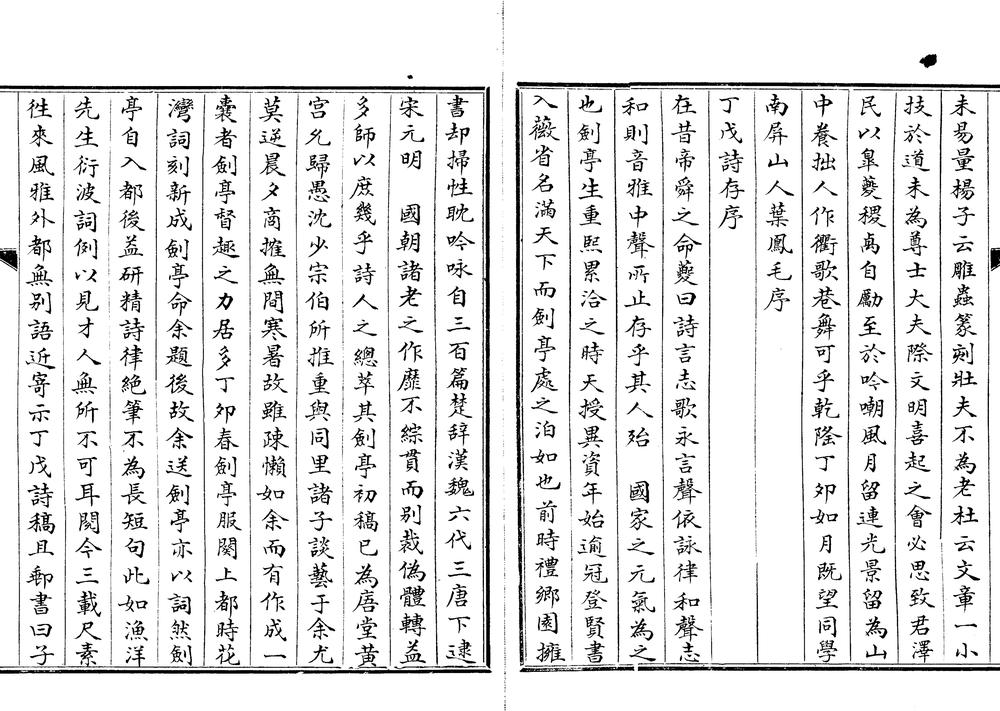 未易量揚子云雕蟲篆刻壯夫不為老杜云文章一小
技於道未為尊士大夫際文明喜起之會必思致君澤
民以臯夔稷卨自勵至於吟嘲風月留連光景留為山
中養拙人作衢歌巷舞可乎乾隆丁夘如月既望同學
南屏山人葉鳳毛序
丁戊詩存序
在昔帝舜之命夔曰詩言志歌永言聲依詠律和聲志
和則音雅中聲所止存乎其人殆　國家之元氣為之
也劍亭生重熙累洽之時天授異資年始逾冠登賢書
入薇省名滿天下而劍亭處之泊如也前時禮鄉園擁
書却掃性耽吟咏自三百篇楚辞漢魏六代三唐下逮
宋元明　國朝諸老之作靡不綜貫而别裁偽體轉益
多師以庶幾乎詩人之總萃其劍亭初稿已為唐堂黄
宫允歸愚沈少宗伯所推重與同里諸子談藝于余尤
莫逆晨夕商搉無間寒暑故雖疎懶如余而有作成一
囊者劍亭督趣之力居多丁夘春劍亭服闋上都時花
灣詞刻新成劍亭命余題後故余送劍亭亦以詞然劍
亭自入都後益研精詩律絶筆不為長短句此如漁洋
先生衍波詞例以見才人無所不可耳闋今三載尺素
徃來風雅外都無别語近寄示丁戊詩稿且郵書曰子